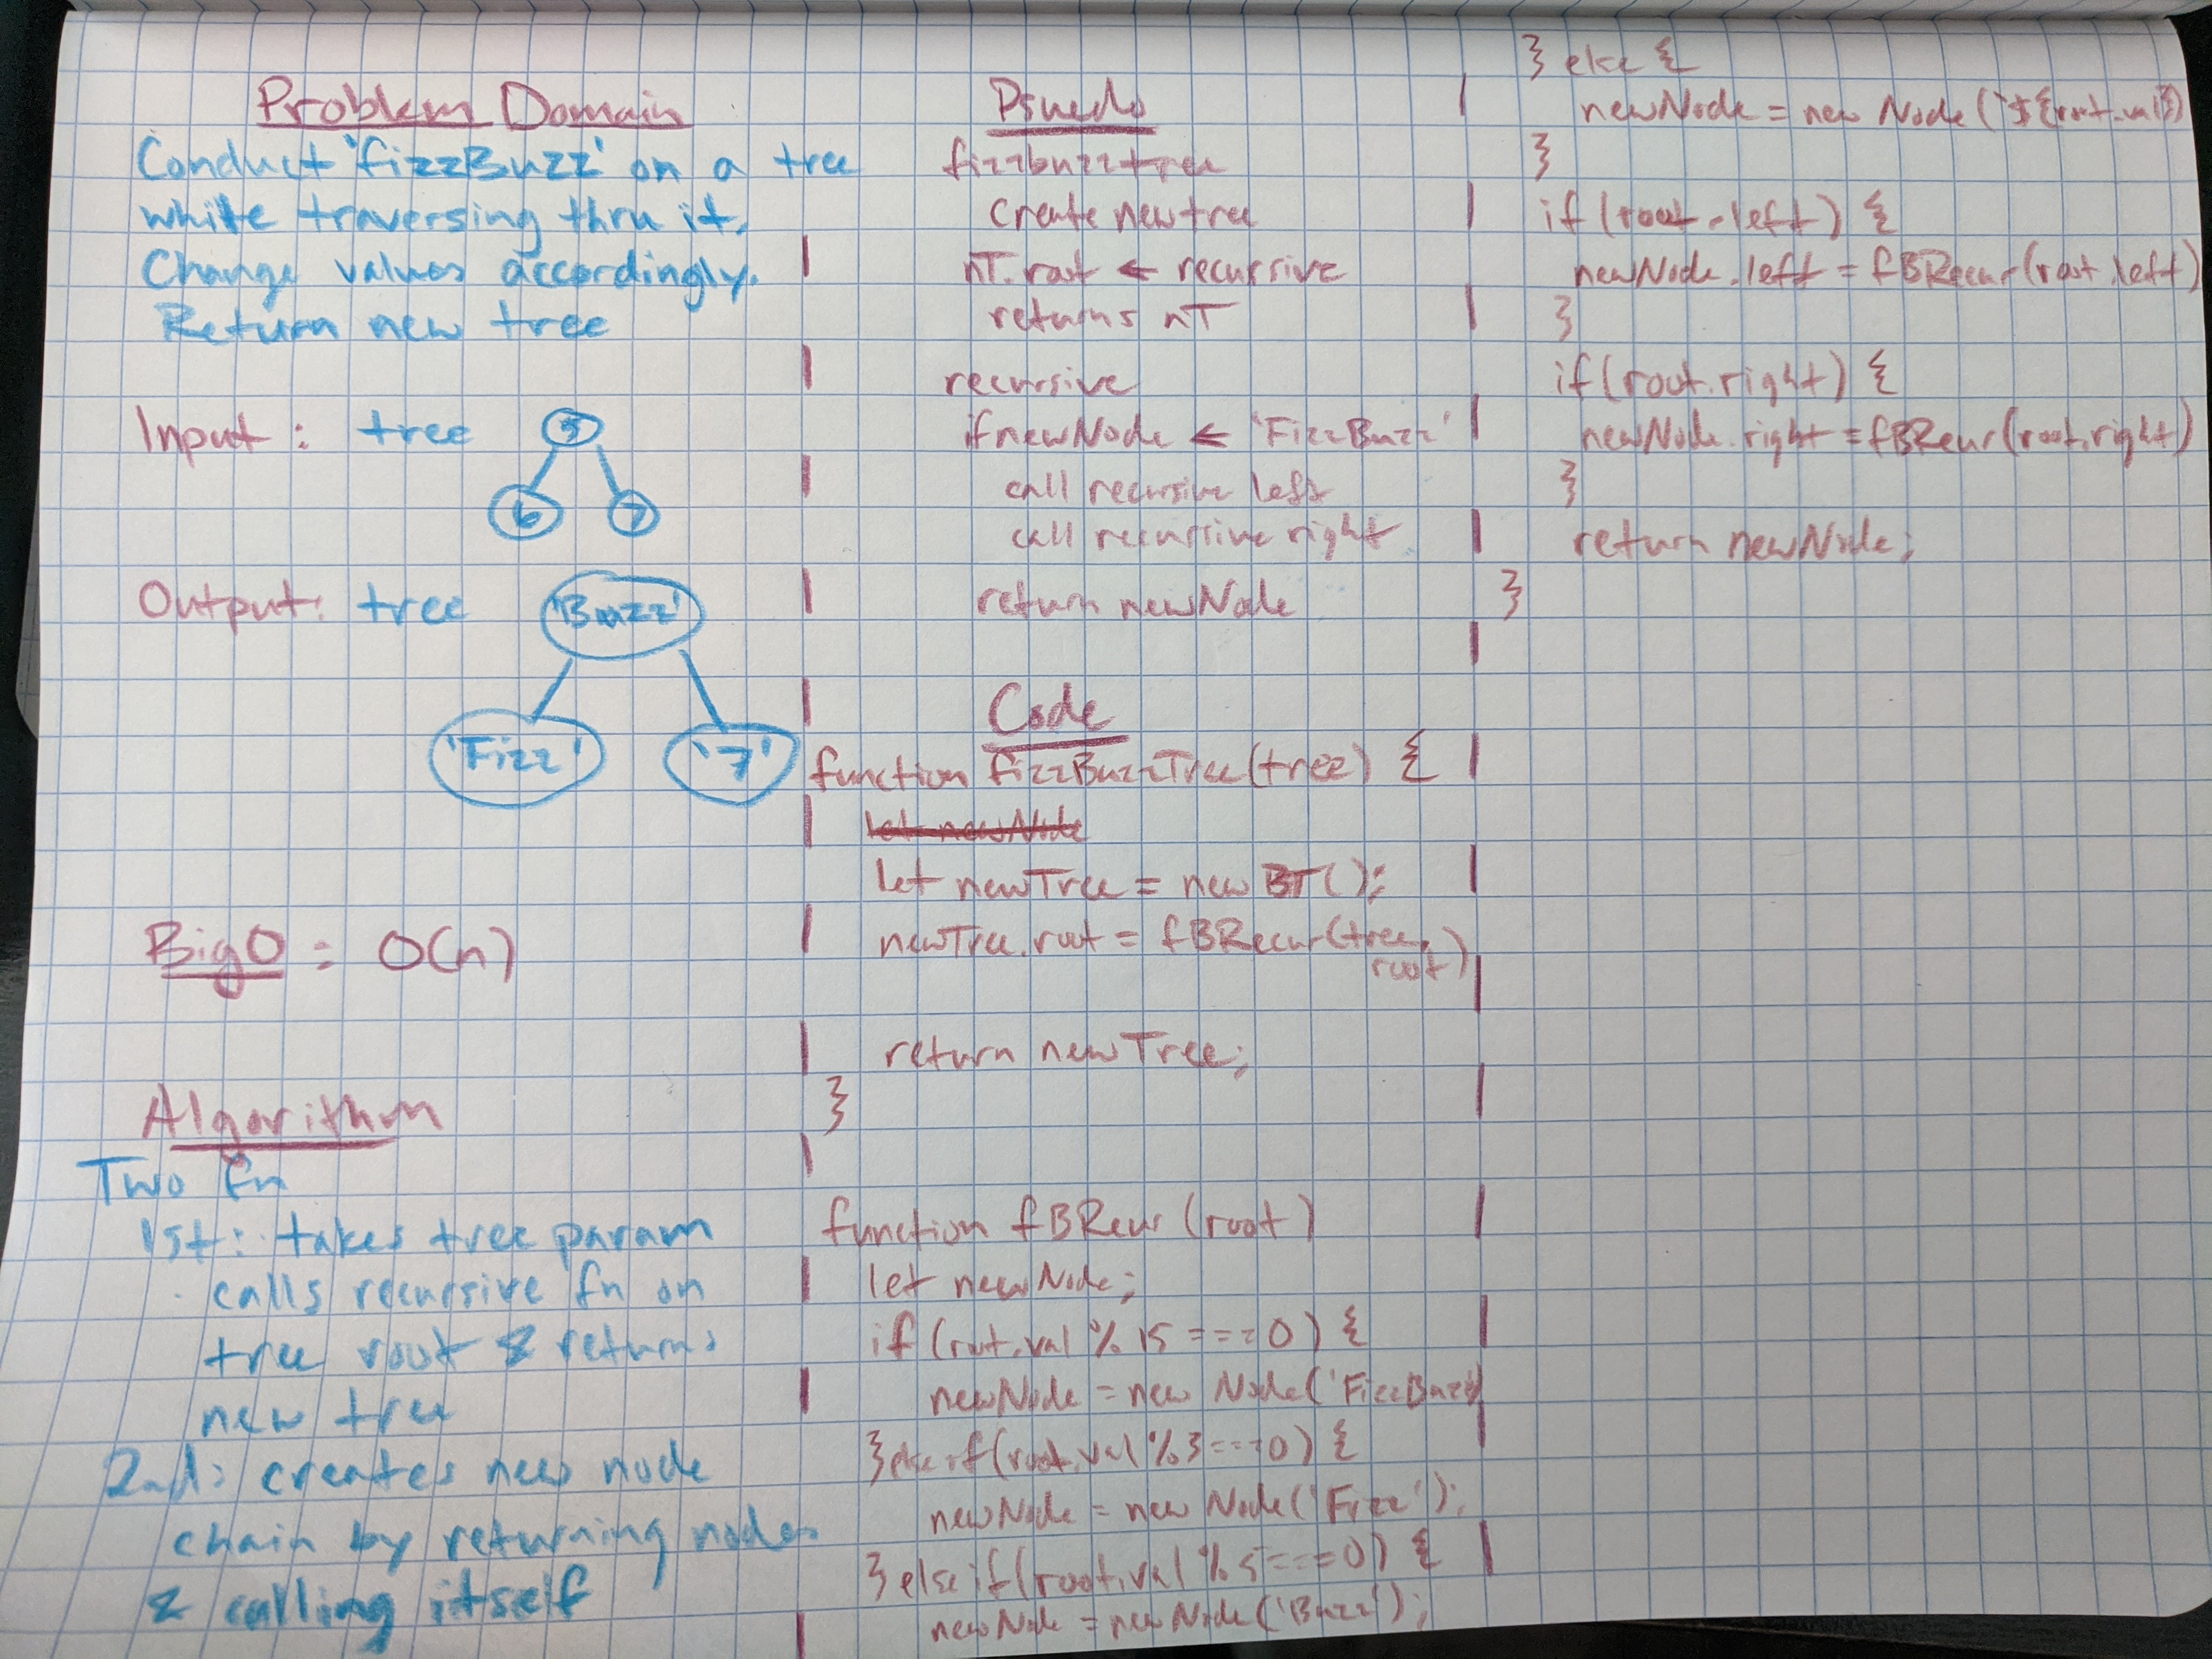 Problem Domain
Conduct 'fizzBuzz' on a tree
while traversing thru it.
Change values accordingly.
Return new tree
Input: tree
5
6 7
Output: tree
'Buzz'
'Fizz' '7'
Big O = O(n)
Algorithm
Two fn
1st: takes tree param
calls recursive fn on
tree root & returns
new tree
2nd: creates new node
chain by returning nodes
& calling itself
Psuedo
fizzbuzztree
Create newtree
nT.root ← recursive
returns nT
recursive
if newNode ← 'FizzBuzz'
call recursive left
call recursive right
return newNode
Code
function fizzBuzzTree(tree) {
let newNode
let newTree = new BT();
newTree.root = fBRecur(tree.
root)
return newTree;
}
function fBRecur (root)
let newNode;
if (root.val % 15 === 0) {
newNode = new Node('FizzBuzz')
} else if (root.val % 3 === 0) {
newNode = new Node('Fizz');
} else if (root.val % 5 === 0) {
newNode = new Node('Buzz');
} else {
newNode = new Node(`${root.val}`)
}
if (root.left) {
newNode.left = fBRecur(root.left)
}
if (root.right) {
newNode.right = fBRecur(root.right)
}
return newNode;
}